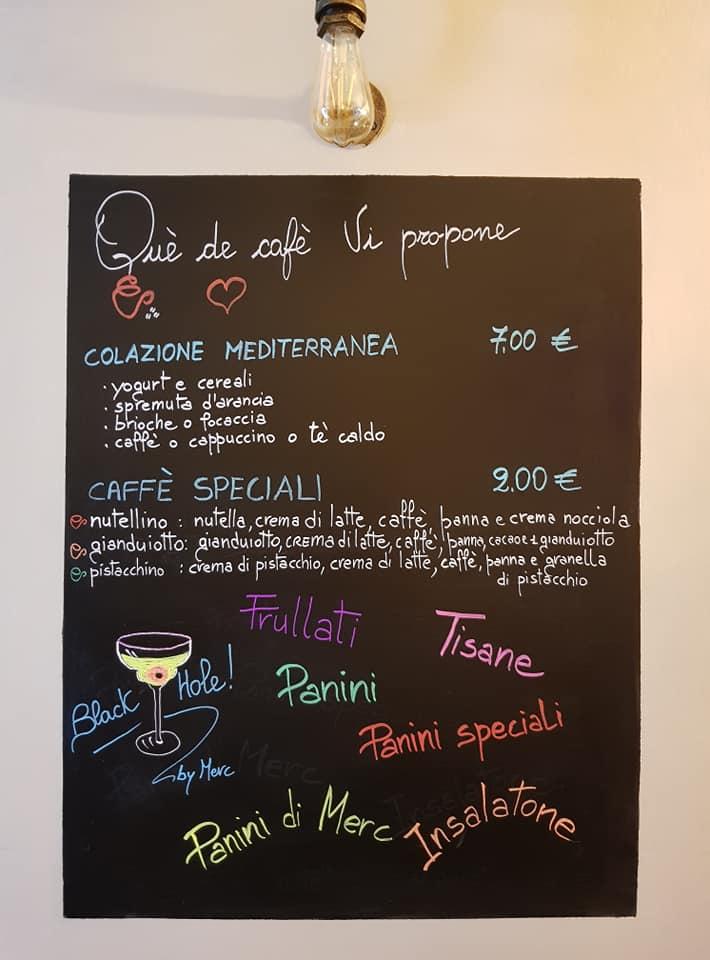 Què de cafè Vi propone
COLAZIONE MEDITERRANEA 7,00 €
. yogurt e cereali
. spremuta d'arancia
. brioche o focaccia
. caffè o cappuccino o tè caldo
CAFFÈ SPECIALI 2,00 €
nutellino : nutella, crema di latte, caffè, panna e crema nocciola
gianduiotto: gianduiotto, crema di latte, caffè, panna, cacao e 1 gianduiotto
pistacchino : crema di pistacchio, crema di latte, caffè, panna e granella
di pistacchio
Frullati
Tisane
Black Hole!
by Merc
Panini
Panini speciali
Panini di Merc
Insalatone